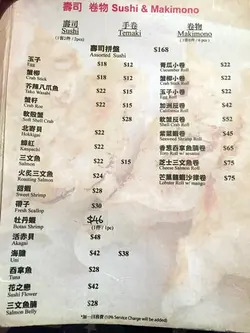 壽司 卷物 Sushi & Makimono
壽司 手卷 卷物
Sushi Temaki Makimono
壽司拼盤 $168
Assorted Sushi
玉子 $18 $12
Egg
蟹柳 $18 $12
Crab Stick
芥辣八爪魚 $22 $15
Tako Wasabi
蟹籽 $22 $15
Crab Roe
軟殼蟹 $28
Soft Shell Crab
北寄貝 $22
Hokkigai
$22
Kanpachi
三文魚 $22 $15
Salmon
火炙三文魚 $24
Roasting Salmon
甜蝦 $28
Sweet Shrimp
帶子 $28
Fresh Scallop
牡丹蝦 $46
Botan Shrimp (1件/1pc)
活赤貝 $48
Akagai
海膽 $42 $38
Uni
吞拿魚 $28
Tuna
花之戀 $42
Sushi Flower
三文魚腩 $28
Salmon Belly
青瓜小卷 $22
Cucumber Roll
蟹柳小卷 $22
Crab Stick Roll
玉子小卷 $22
Egg Roll
加洲反卷 $42
California Roll
軟殼蟹卷 $52
Soft Shell Crab Roll
紫菜蝦卷 $45
Seaweed Shrimp Roll
$55
芝士三文魚卷 $55
Cheese Salmon Roll
$55
Lobster Roll w/ mango
*加一服務費 (10% Service Charge will be added)